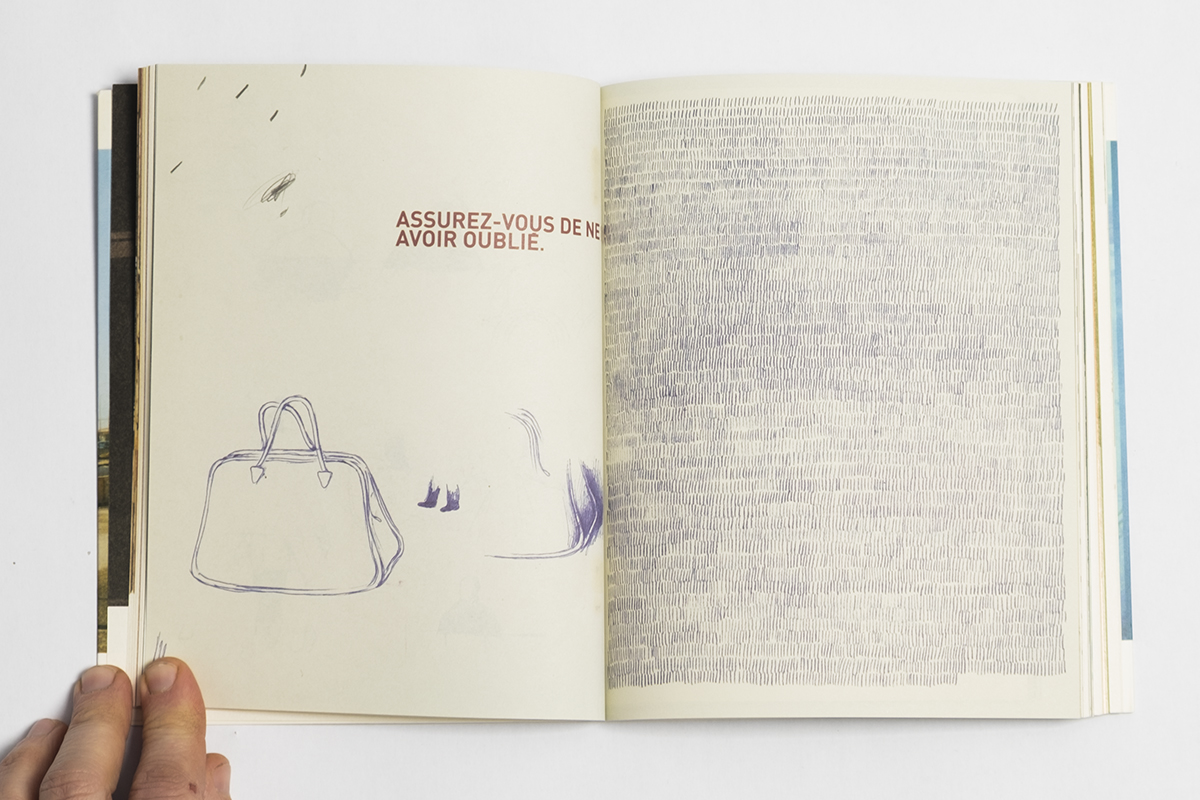 ASSUREZ-VOUS DE NE
AVOIR OUBLIÉ.